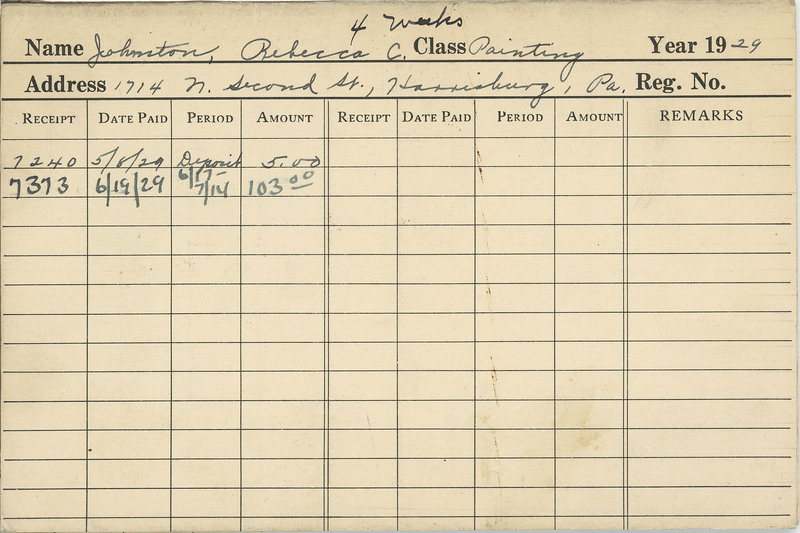 4 weeks
Name Johnston, Rebecca C. Class Painting Year 1929
Address 1714 N. Second St., Harrisburg, Pa. Reg. No.
RECEIPT DATE PAID PERIOD AMOUNT RECEIPT DATE PAID PERIOD AMOUNT REMARKS
7240 5/8/29 Deposit 5.00
7373 6/19/29 6/17-7/14 103.00